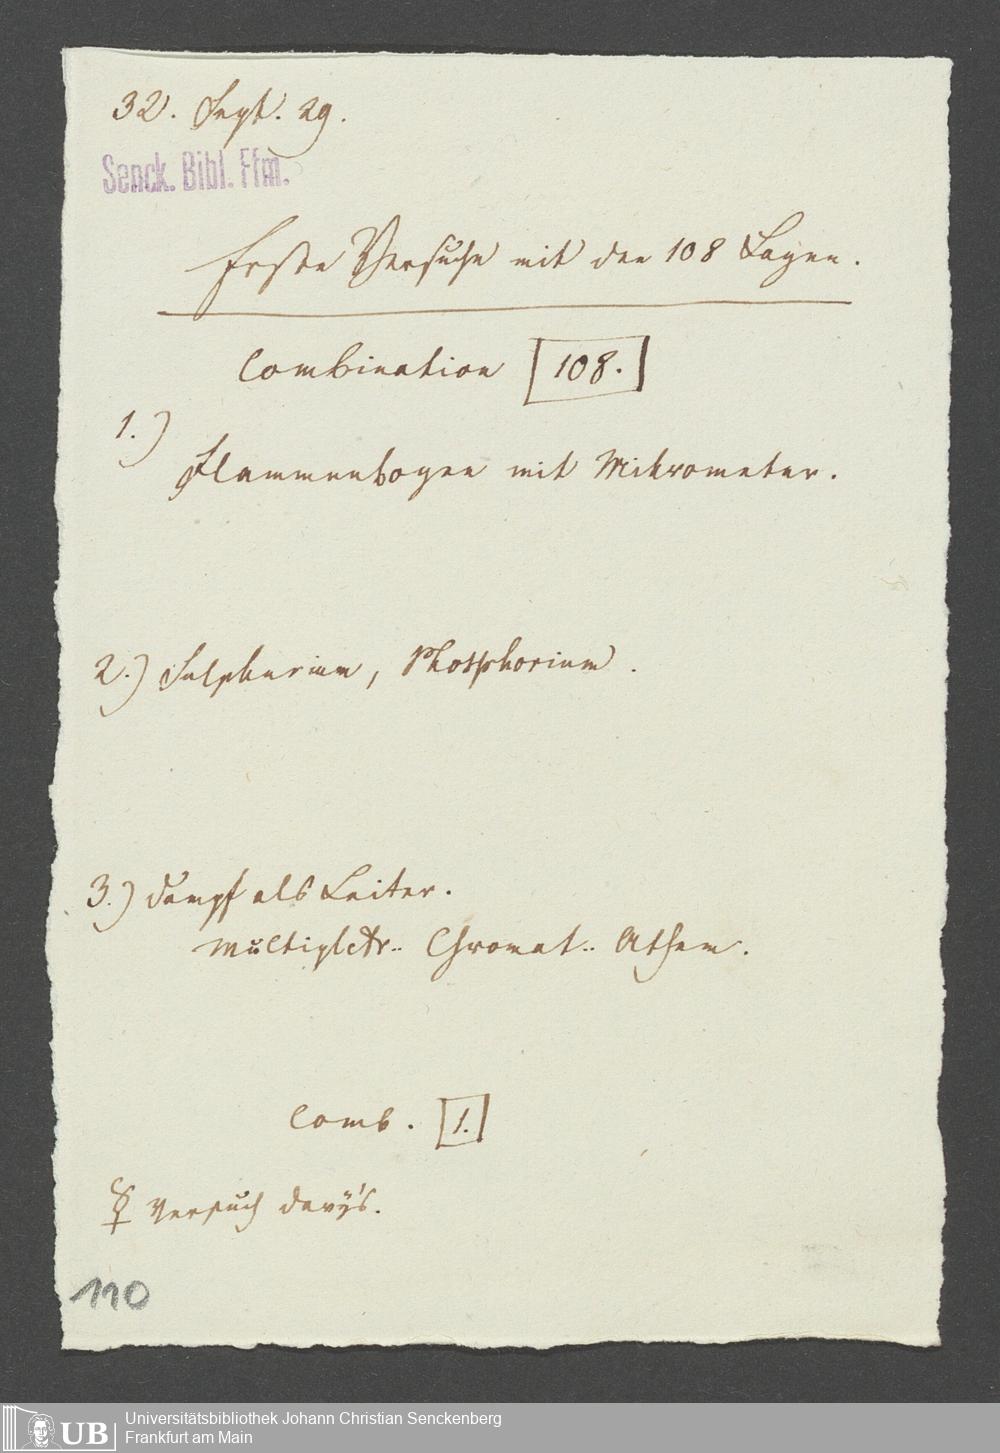 32. Sept. 29.
Senck. Bibl. Ffm.
Erste Versuche mit den 108 Lagen.
Combination 108.
1.)
Flammenbogen mit Mikrometer.
2.) Sulphurium, Phosphorium.
3.) Dampf als Leiter.
Athem.
Comb. 1.
☿ Versuch Davy's.
110
UB Universitätsbibliothek Johann Christian Senckenberg
Frankfurt am Main